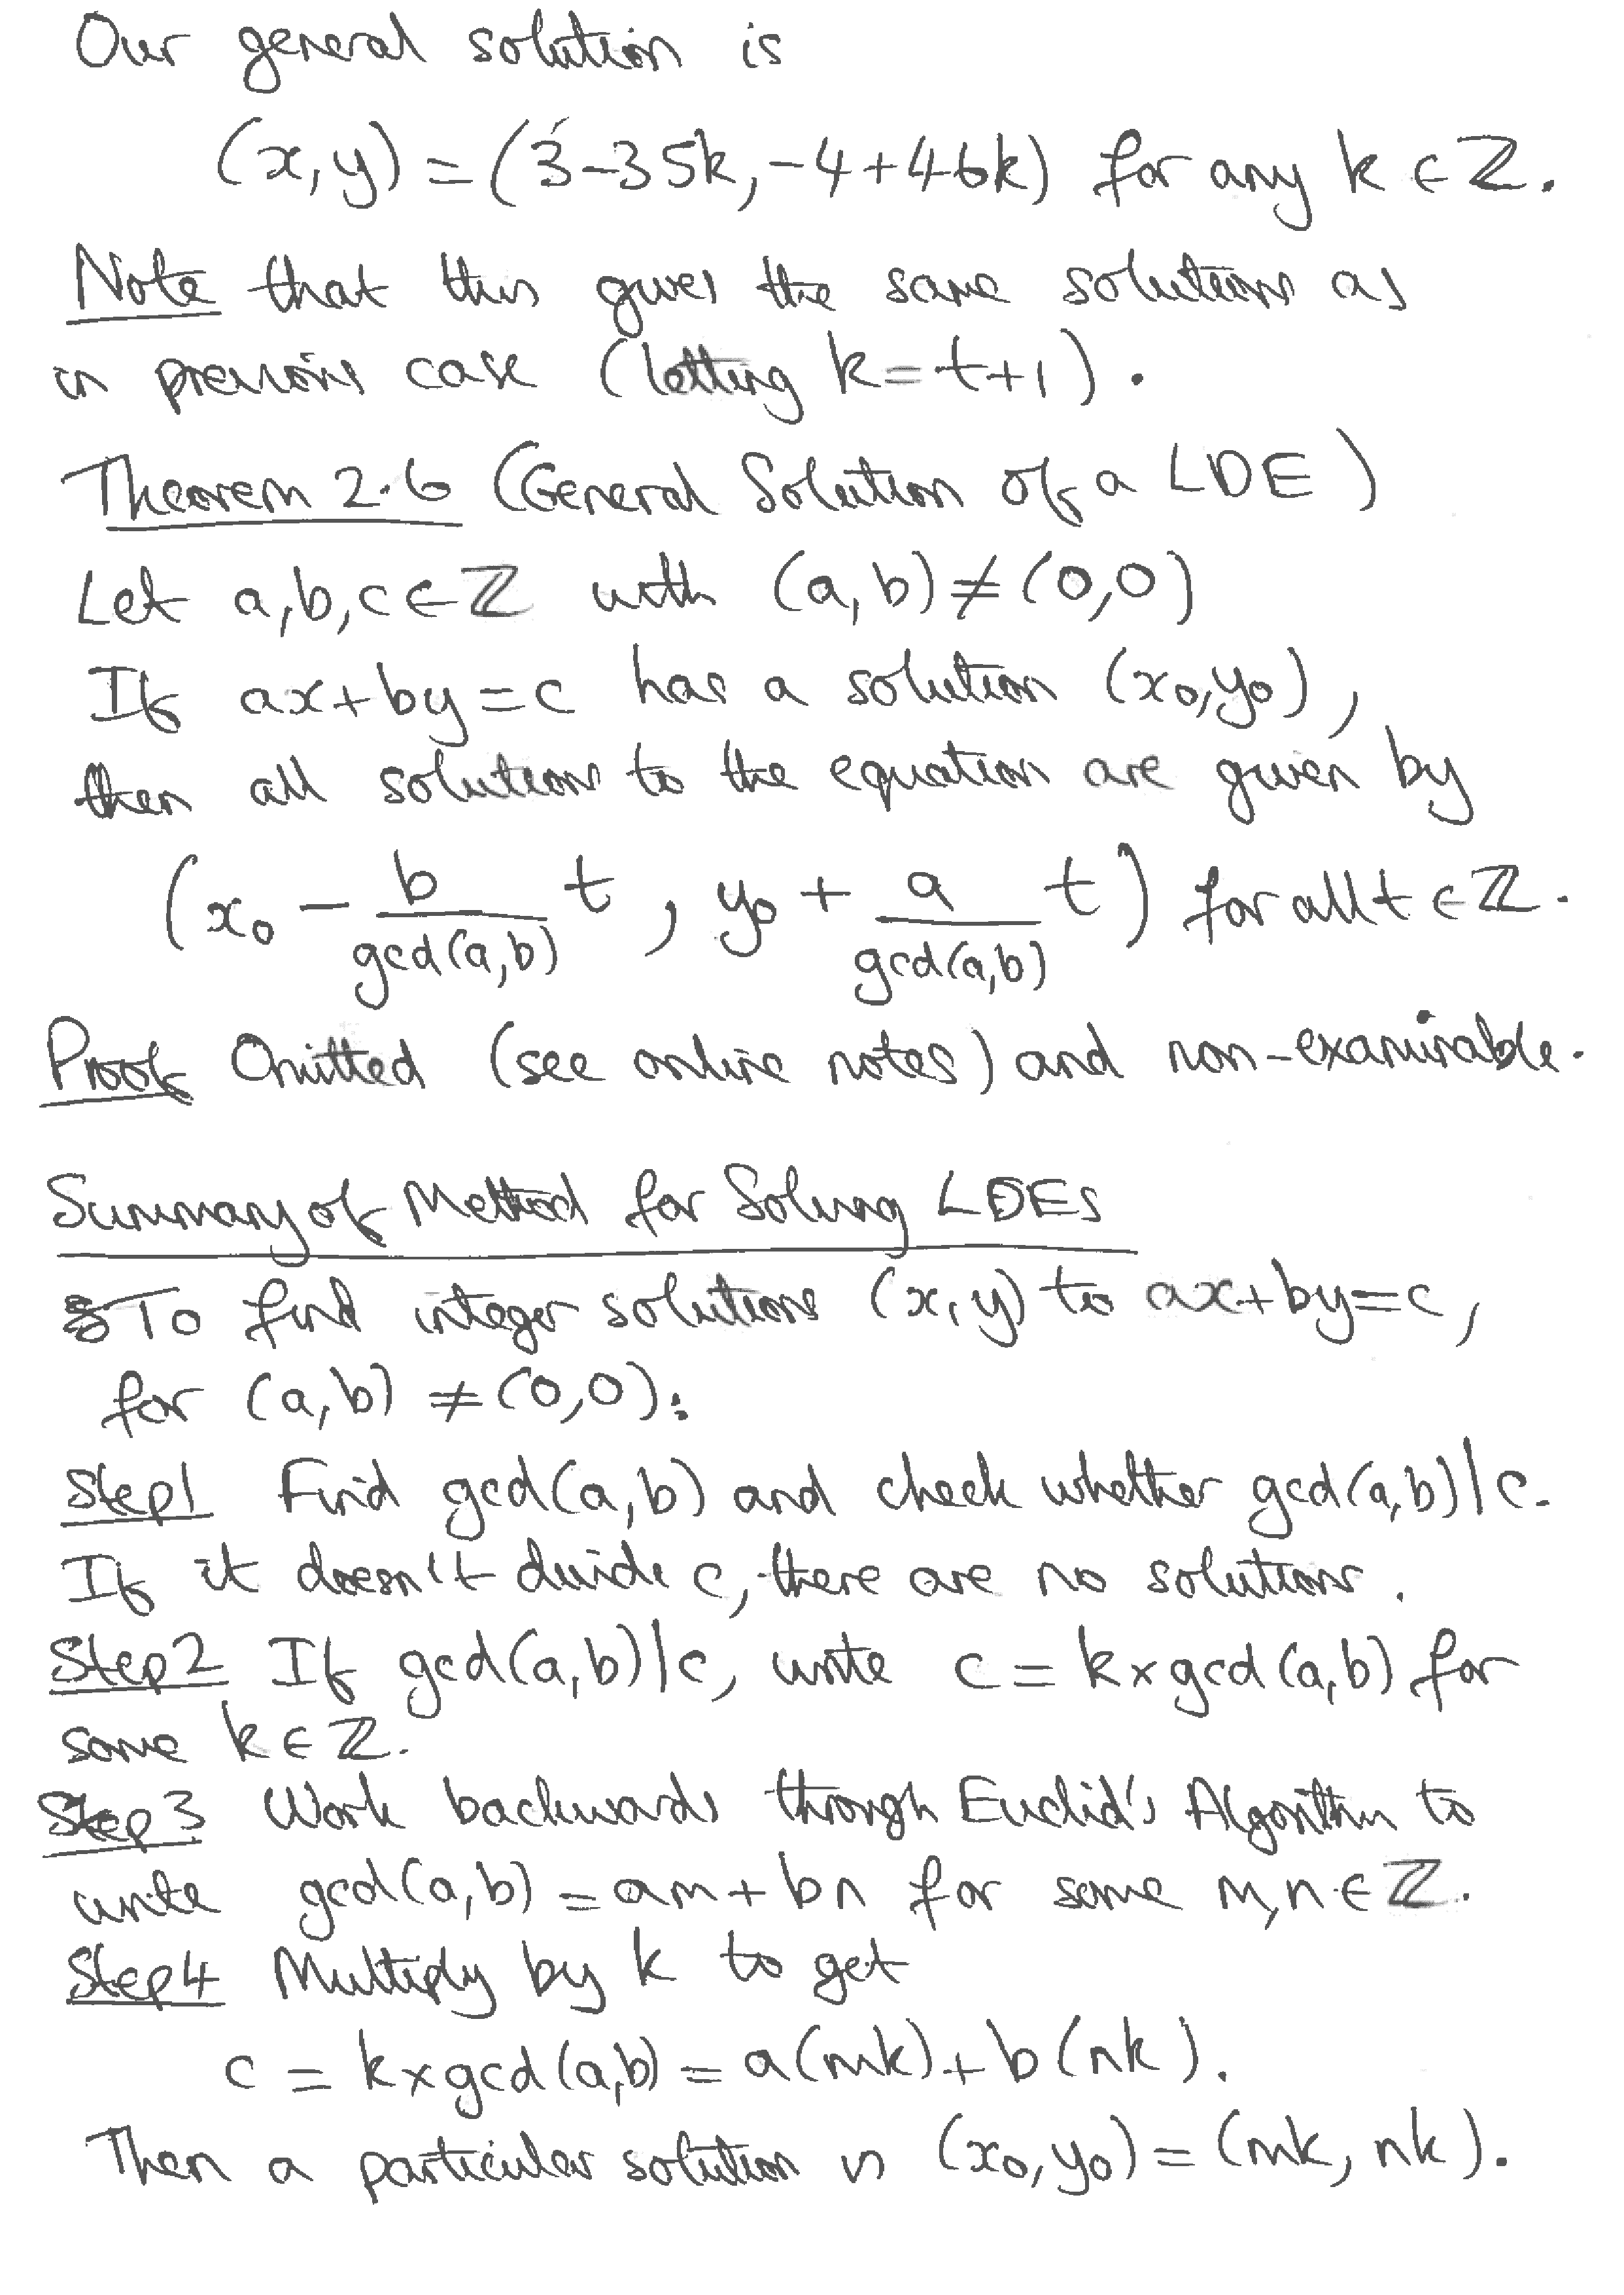 Our general solution is
(x,y) = (3-35k, -4+46k) for any k ∈ ℤ.
Note that this gives the same solutions as
in previous case (letting k = t+1).
Theorem 2.6 (General Solution of a LDE)
Let a,b,c ∈ ℤ with (a,b) ≠ (0,0)
If ax+by=c has a solution (x₀,y₀),
then all solutions to the equation are given by
(x₀ - b/gcd(a,b) t, y₀ + a/gcd(a,b) t) for all t ∈ ℤ.
Proof Omitted (see online notes) and non-examinable.
Summary of Method for Solving LDEs
To find integer solutions (x,y) to ax+by=c,
for (a,b) ≠ (0,0):
Step1 Find gcd(a,b) and check whether gcd(a,b)|c.
If it doesn't divide c, there are no solutions.
Step2 If gcd(a,b)|c, write c = k×gcd(a,b) for
some k ∈ ℤ.
Step3 Work backwards through Euclid's Algorithm to
write gcd(a,b) = am + bn for some m,n ∈ ℤ.
Step4 Multiply by k to get
c = k×gcd(a,b) = a(mk) + b(nk).
Then a particular solution is (x₀,y₀) = (mk, nk).